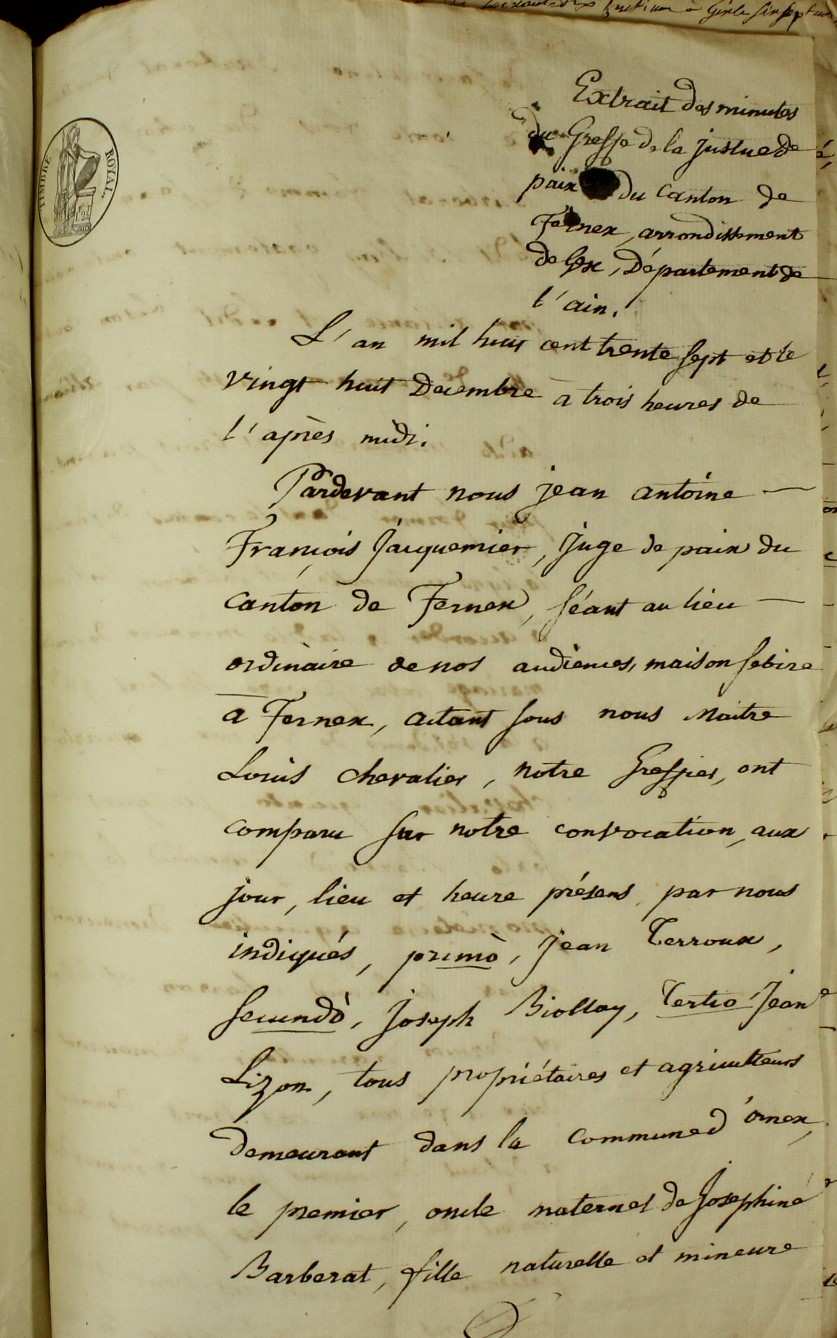 TIMBRE ROYAL.
Extrait des minutes
du Greffe de la justice de
paix du canton de
Fernex, arrondissement
de Gex, Département de
l'ain.
L'an mil huit cent trente sept et le
vingt huit Decembre à trois heures de
l'après midi.
Pardevant nous jean antoine —
François Jacquemier, Juge de paix du
canton de Fernex, séant au lieu —
ordinaire de nos audiences, maison
à Fernex, aïtant sous nous Maitre
Louis chevalier, notre Greffier, ont
comparu sur notre convocation, aux
jour, lieu et heure présens par nous
indiqués, primò, jean Terroux,
secundò, joseph Biollay, Tertio Jean
Lizon, tous propriétaires et agriculteurs
demeurant dans la commune d'ornex,
le premier, oncle maternel de Josephine
Barberat, fille naturelle et mineure